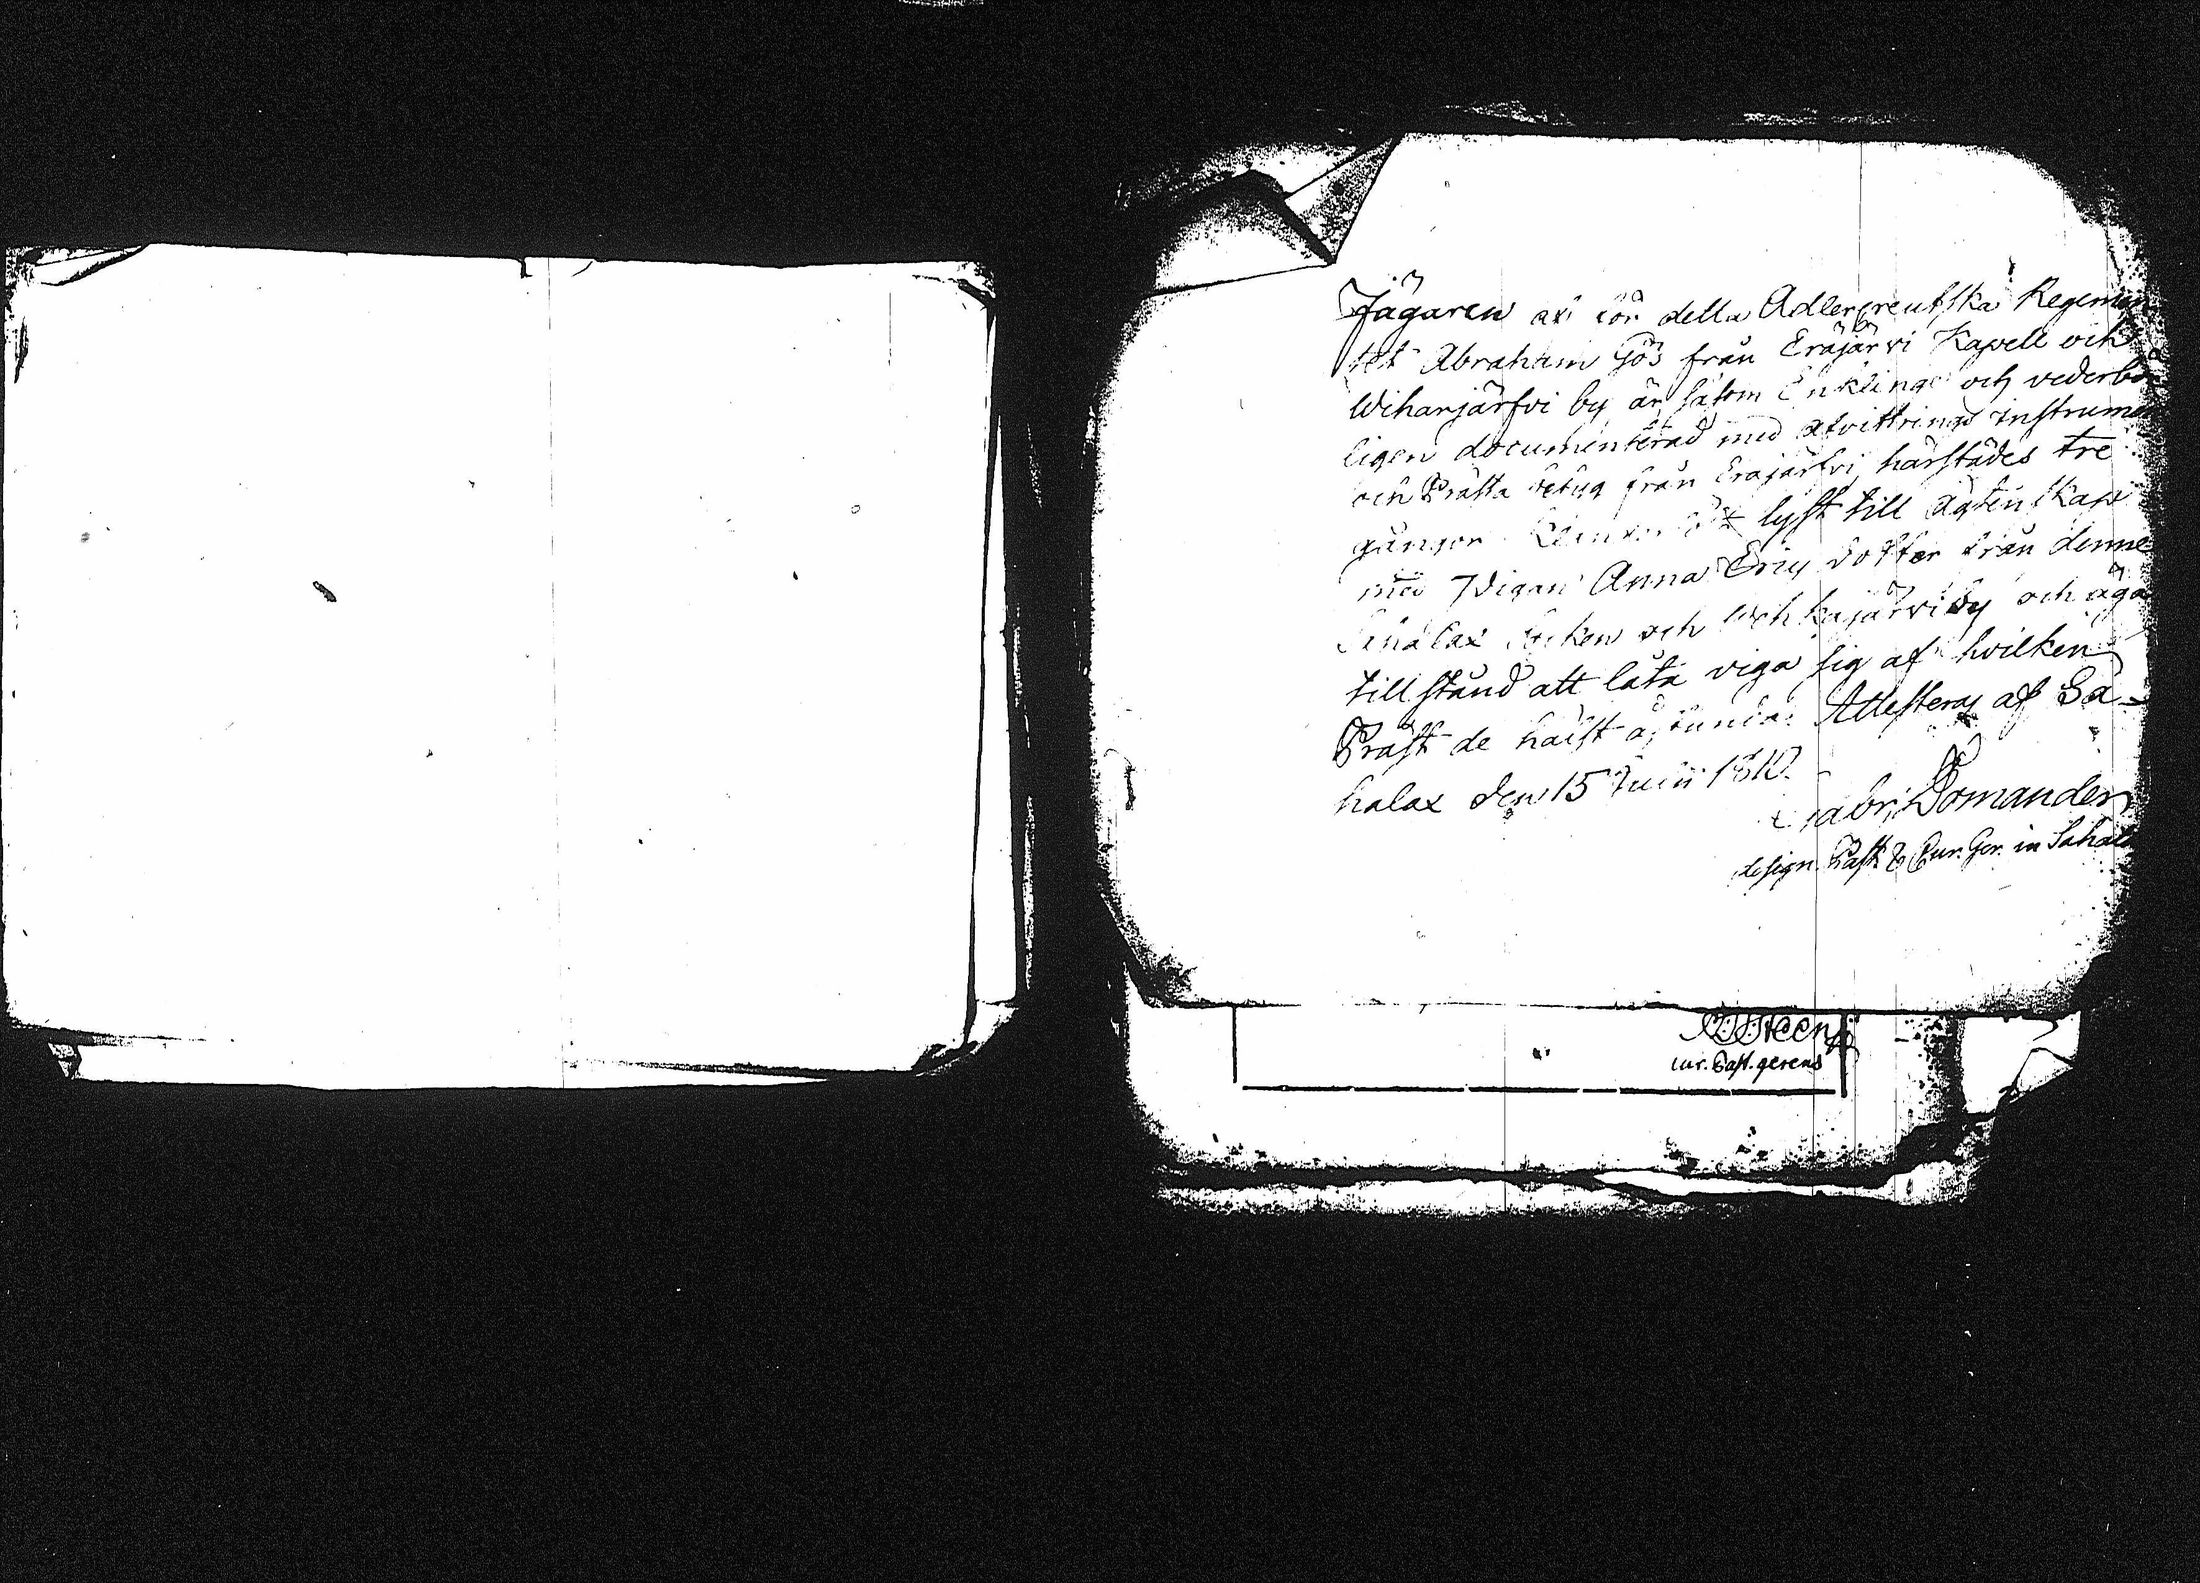 Jägaren af för detta Adlercreutska Regemen
tet Abraham Gös från Eräjärvi Kapell och
Wihasjärfvi by är såsom Enkling och vederbör
ligen documenterad med afvittrings instrumen
och Prästa betyg från Eräjärfvi härstädes tre
gångor lyst till ägtenskap
med Pigan Anna Erics dotter från denne
Sahalax Socken och by och äga
tillstånd att låta viga sig af hvilken
Präst de hälst åstunda. Attesteras af Sa-
halax den 15 Junii 1810.
Gabr. Bomander
design. Past. & Cur. Ger. in Sahala
cur. Past. gerens